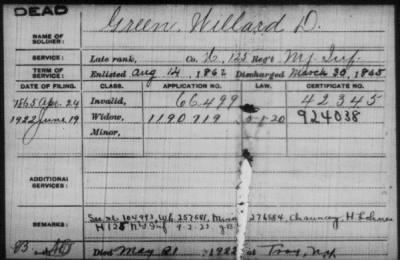 DEAD
NAME OF SOLDIER: Green, Willard D.
SERVICE: Late rank, Co. H, 125 Reg't N.Y. Inf.
TERM OF SERVICE: Enlisted Aug 14, 1862 Discharged March 30, 1865
DATE OF FILING. CLASS. APPLICATION NO. LAW. CERTIFICATE NO.
1865 Apr. 24 Invalid, 66499 42345
1922 June 19 Widow, 1190719 5-1-20 924038
Minor,
ADDITIONAL SERVICES:
REMARKS: 104993, 257681, Minor 276584, Chauncey H
H 125 N.Y. Inf
Died May 21, 1922 at Troy, N.Y.